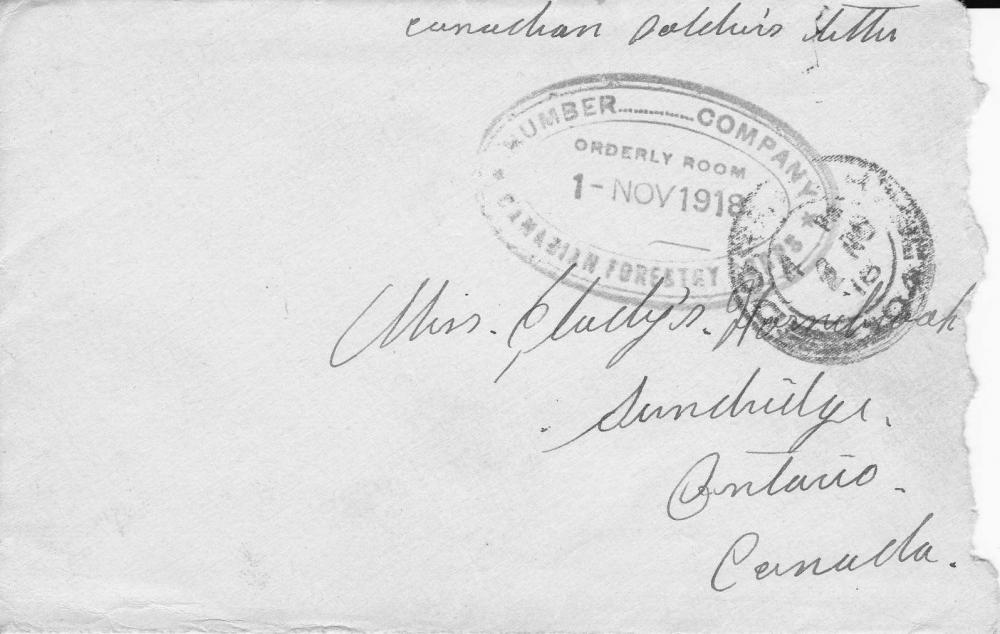 Canadian Soldier's letter
NUMBER............COMPANY
ORDERLY ROOM
1 - NOV 1918
CANADIAN FORESTRY CORPS
Miss. Gladys.
Sundridge.
Ontario.
Canada.